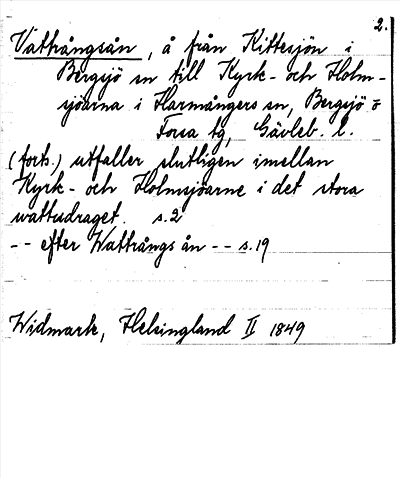 2.
Vattrångsån, å från Kittesjön i
Bergsjö sn till Kyrk- och Holm-
sjöarna i Harmångers sn, Bergsjö o
Forsa tg, Gävleb. l.
(forts.) utfaller slutligen imellan
Kyrk- och Holmsjöarne i det stora
wattudraget. s.2
-- efter Wattrångs ån -- s.19
Widmark, Helsingland II 1849